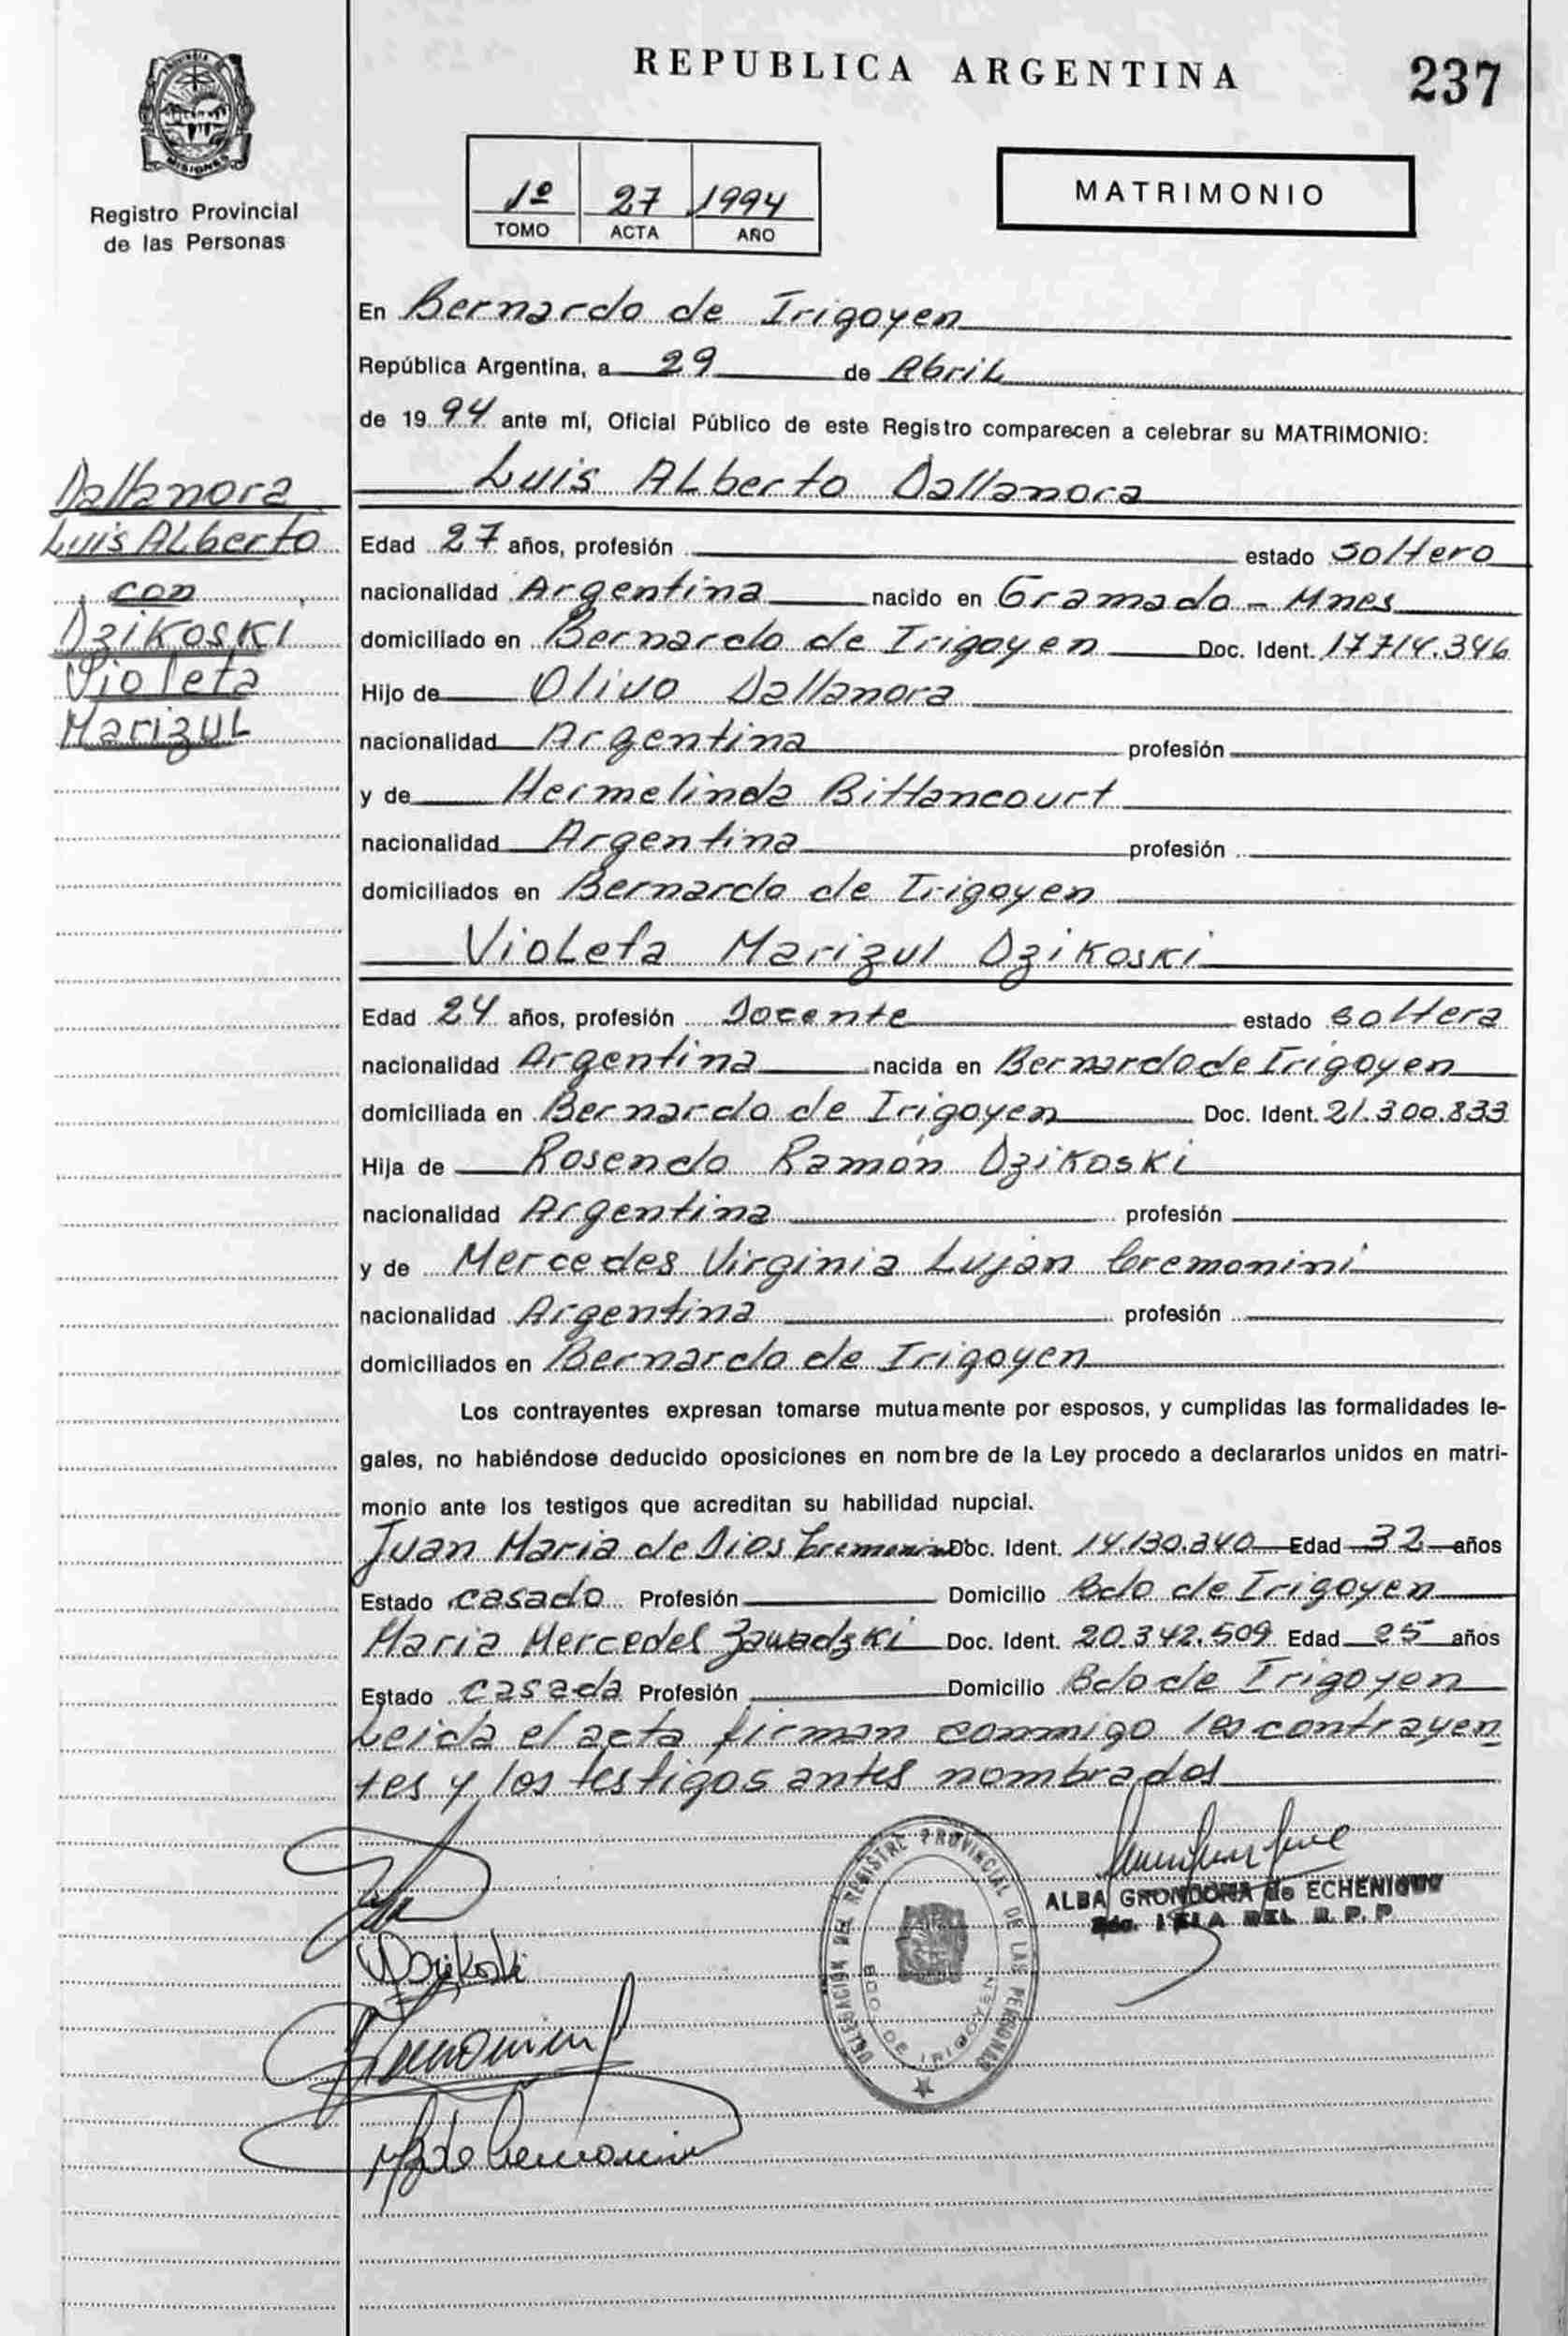 REPUBLICA ARGENTINA
237
MISIONES
Registro Provincial
de las Personas
1º 27 1994
TOMO ACTA AÑO
MATRIMONIO
En Bernardo de Irigoyen
República Argentina, a 29 de Abril
de 1994 ante mí, Oficial Público de este Registro comparecen a celebrar su MATRIMONIO:
Dallanora
Luis Alberto
con
Dzikoski
Violeta
Marizul
Luis Alberto Dallanora
Edad 27 años, profesión estado soltero
nacionalidad Argentina nacido en Gramado - Mnes
domiciliado en Bernardo de Irigoyen Doc. Ident. 17714.346
Hijo de Olivo Dallanora
nacionalidad Argentina profesión
y de Hermelinda Bittancourt
nacionalidad Argentina profesión
domiciliados en Bernardo de Irigoyen
Violeta Marizul Dzikoski
Edad 24 años, profesión Docente estado soltera
nacionalidad Argentina nacida en Bernardo de Irigoyen
domiciliada en Bernardo de Irigoyen Doc. Ident. 21.300.833
Hija de Rosendo Ramón Dzikoski
nacionalidad Argentina profesión
y de Mercedes Virginia Lujan Cremonini
nacionalidad Argentina profesión
domiciliados en Bernardo de Irigoyen
Los contrayentes expresan tomarse mutuamente por esposos, y cumplidas las formalidades le-
gales, no habiéndose deducido oposiciones en nombre de la Ley procedo a declararlos unidos en matri-
monio ante los testigos que acreditan su habilidad nupcial.
Juan Maria de Dios Cremonini Doc. Ident. 14.130.240 Edad 32 años
Estado casado Profesión Domicilio Bdo de Irigoyen
Maria Mercedes Zawadzki Doc. Ident. 20.342.509 Edad 25 años
Estado casada Profesión Domicilio Bdo de Irigoyen
Leida el acta firman conmigo los contrayen
tes y los testigos antes nombrados
Dzikoski
DELEGACIÓN DEL REGISTRO PROVINCIAL DE LAS PERSONAS
BDO. DE IRIGOYEN
ALBA GRONDONA de ECHENIQUE
DEL R. P. P.